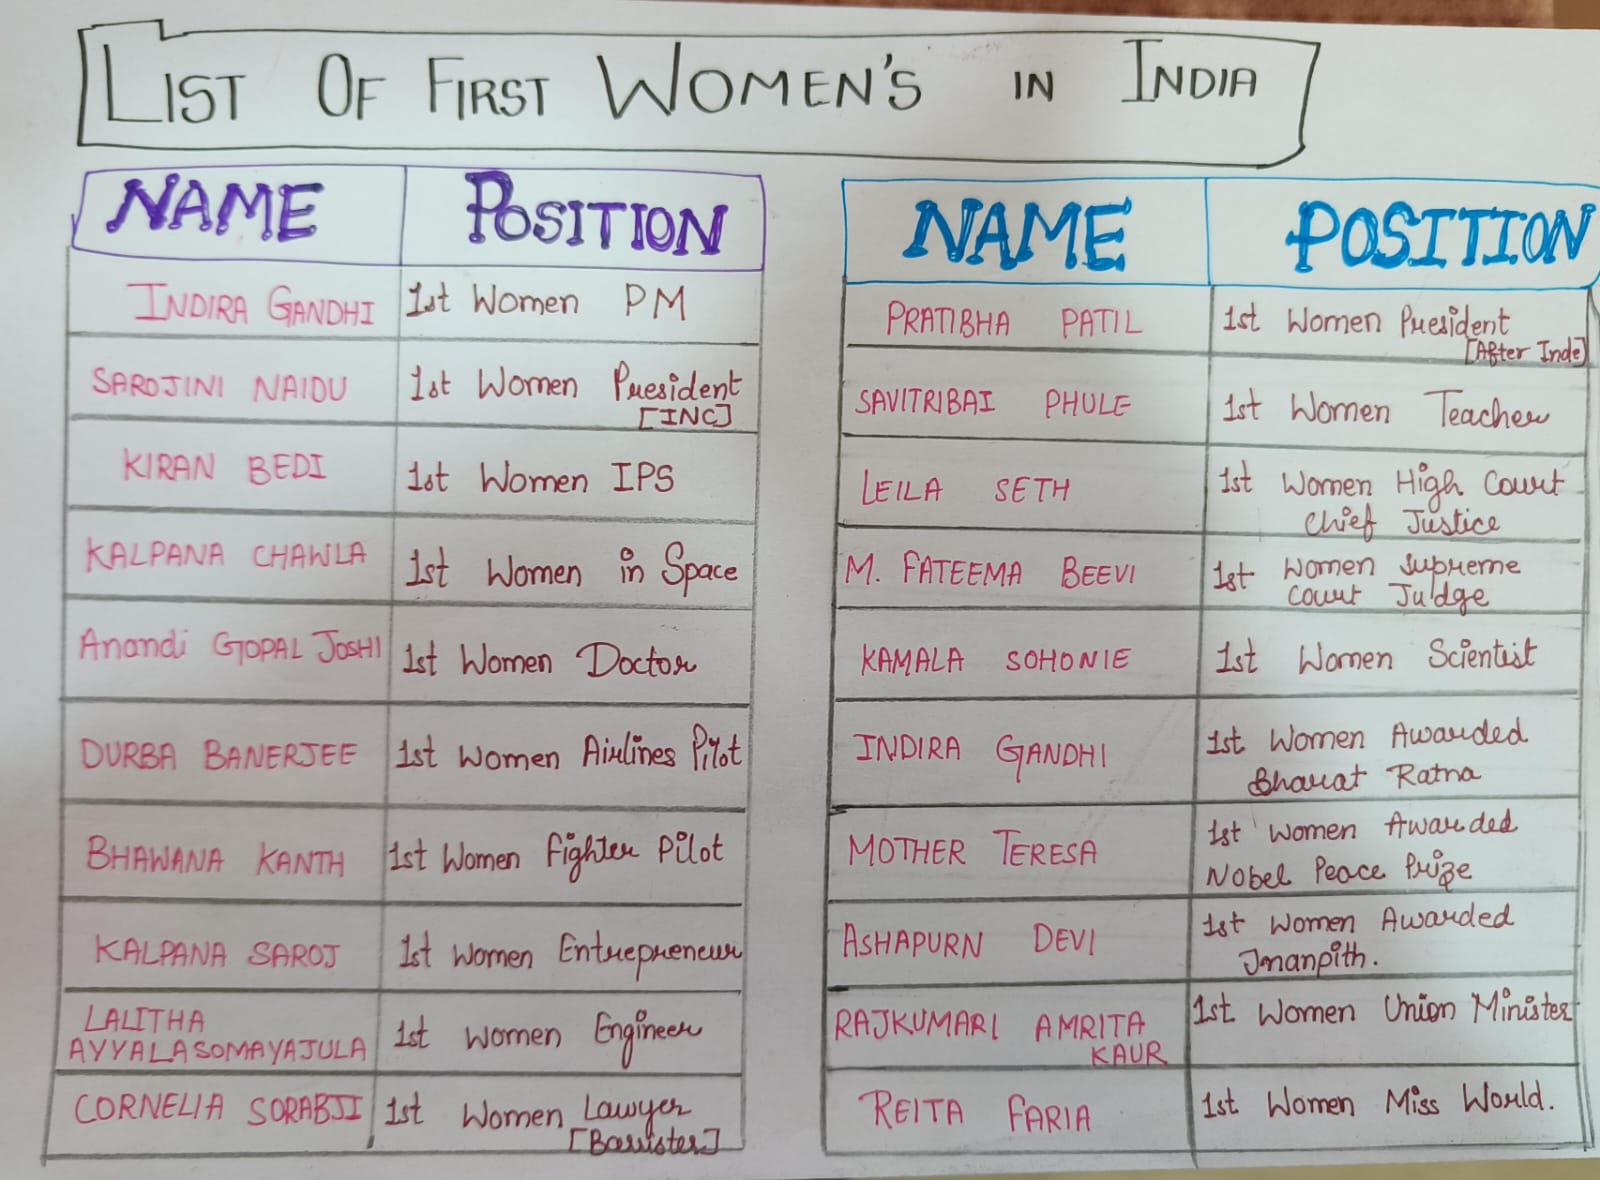 LIST OF FIRST WOMEN'S IN INDIA
NAME POSITION
INDIRA GANDHI 1st Women PM
SAROJINI NAIDU 1st Women President
[INC]
KIRAN BEDI 1st Women IPS
KALPANA CHAWLA 1st Women in Space
Anandi GOPAL JOSHI 1st Women Doctor
DURBA BANERJEE 1st Women Airlines Pilot
BHAWANA KANTH 1st Women Fighter Pilot
KALPANA SAROJ 1st Women Entrepreneur
LALITHA
AYYALASOMAYAJULA 1st Women Engineer
CORNELIA SORABJI 1st Women Lawyer
[Barrister]
NAME POSITION
PRATIBHA PATIL 1st Women President
[After Inde]
SAVITRIBAI PHULE 1st Women Teacher
LEILA SETH 1st Women High Court
Chief Justice
M. FATEEMA BEEVI 1st Women Supreme
Court Judge
KAMALA SOHONIE 1st Women Scientist
INDIRA GANDHI 1st Women Awarded
Bharat Ratna
MOTHER TERESA 1st Women Awarded
Nobel Peace Prize
ASHAPURN DEVI 1st Women Awarded
Jnanpith.
RAJKUMARI AMRITA 1st Women Union Minister
KAUR
REITA FARIA 1st Women Miss World.